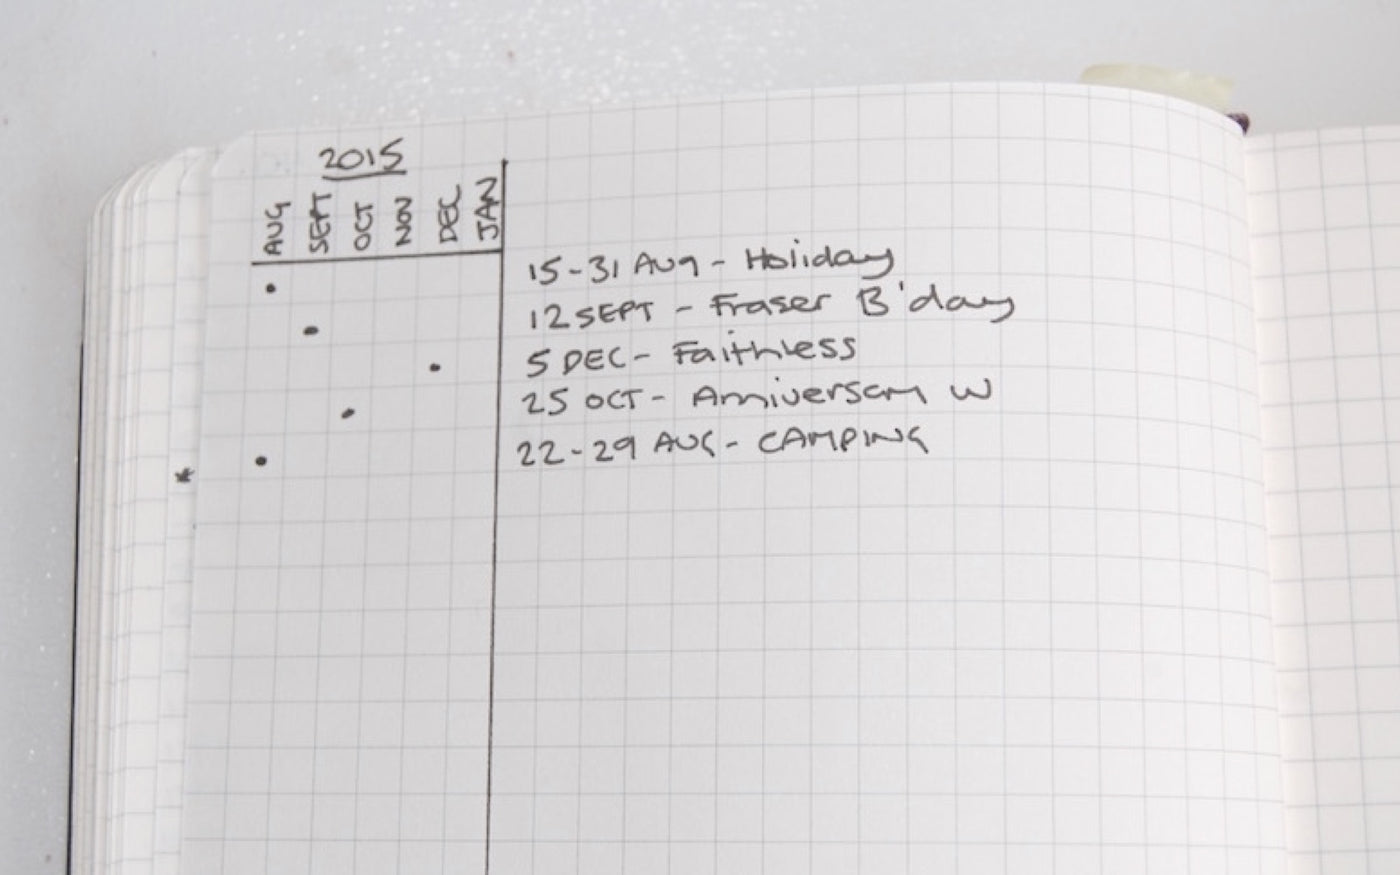 2015
AUG SEPT OCT NOV DEC JAN
15-31 Aug - Holiday
12 SEPT - Fraser B'day
5 DEC - Faithless
25 OCT - Anniversary W
22-29 AUG - CAMPING
*